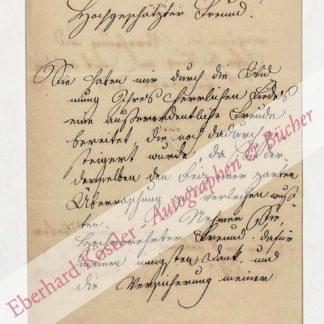 Hochgeschätzter Freund!
Sie haben mir durch die Wid-
nung Ihres herrlichen Liedes
eine außerordentliche Freude
bereitet die noch dadurch
steigert wurde, da Sie der
derselben den zarten
Überraschung verleihen wuß-
ten. Nehmen Sie,
Hochverehrter Freund, dafür
meinen innigsten Dank, und
die Versicherung meiner
Eberhard Köstler Autographen & Bücher